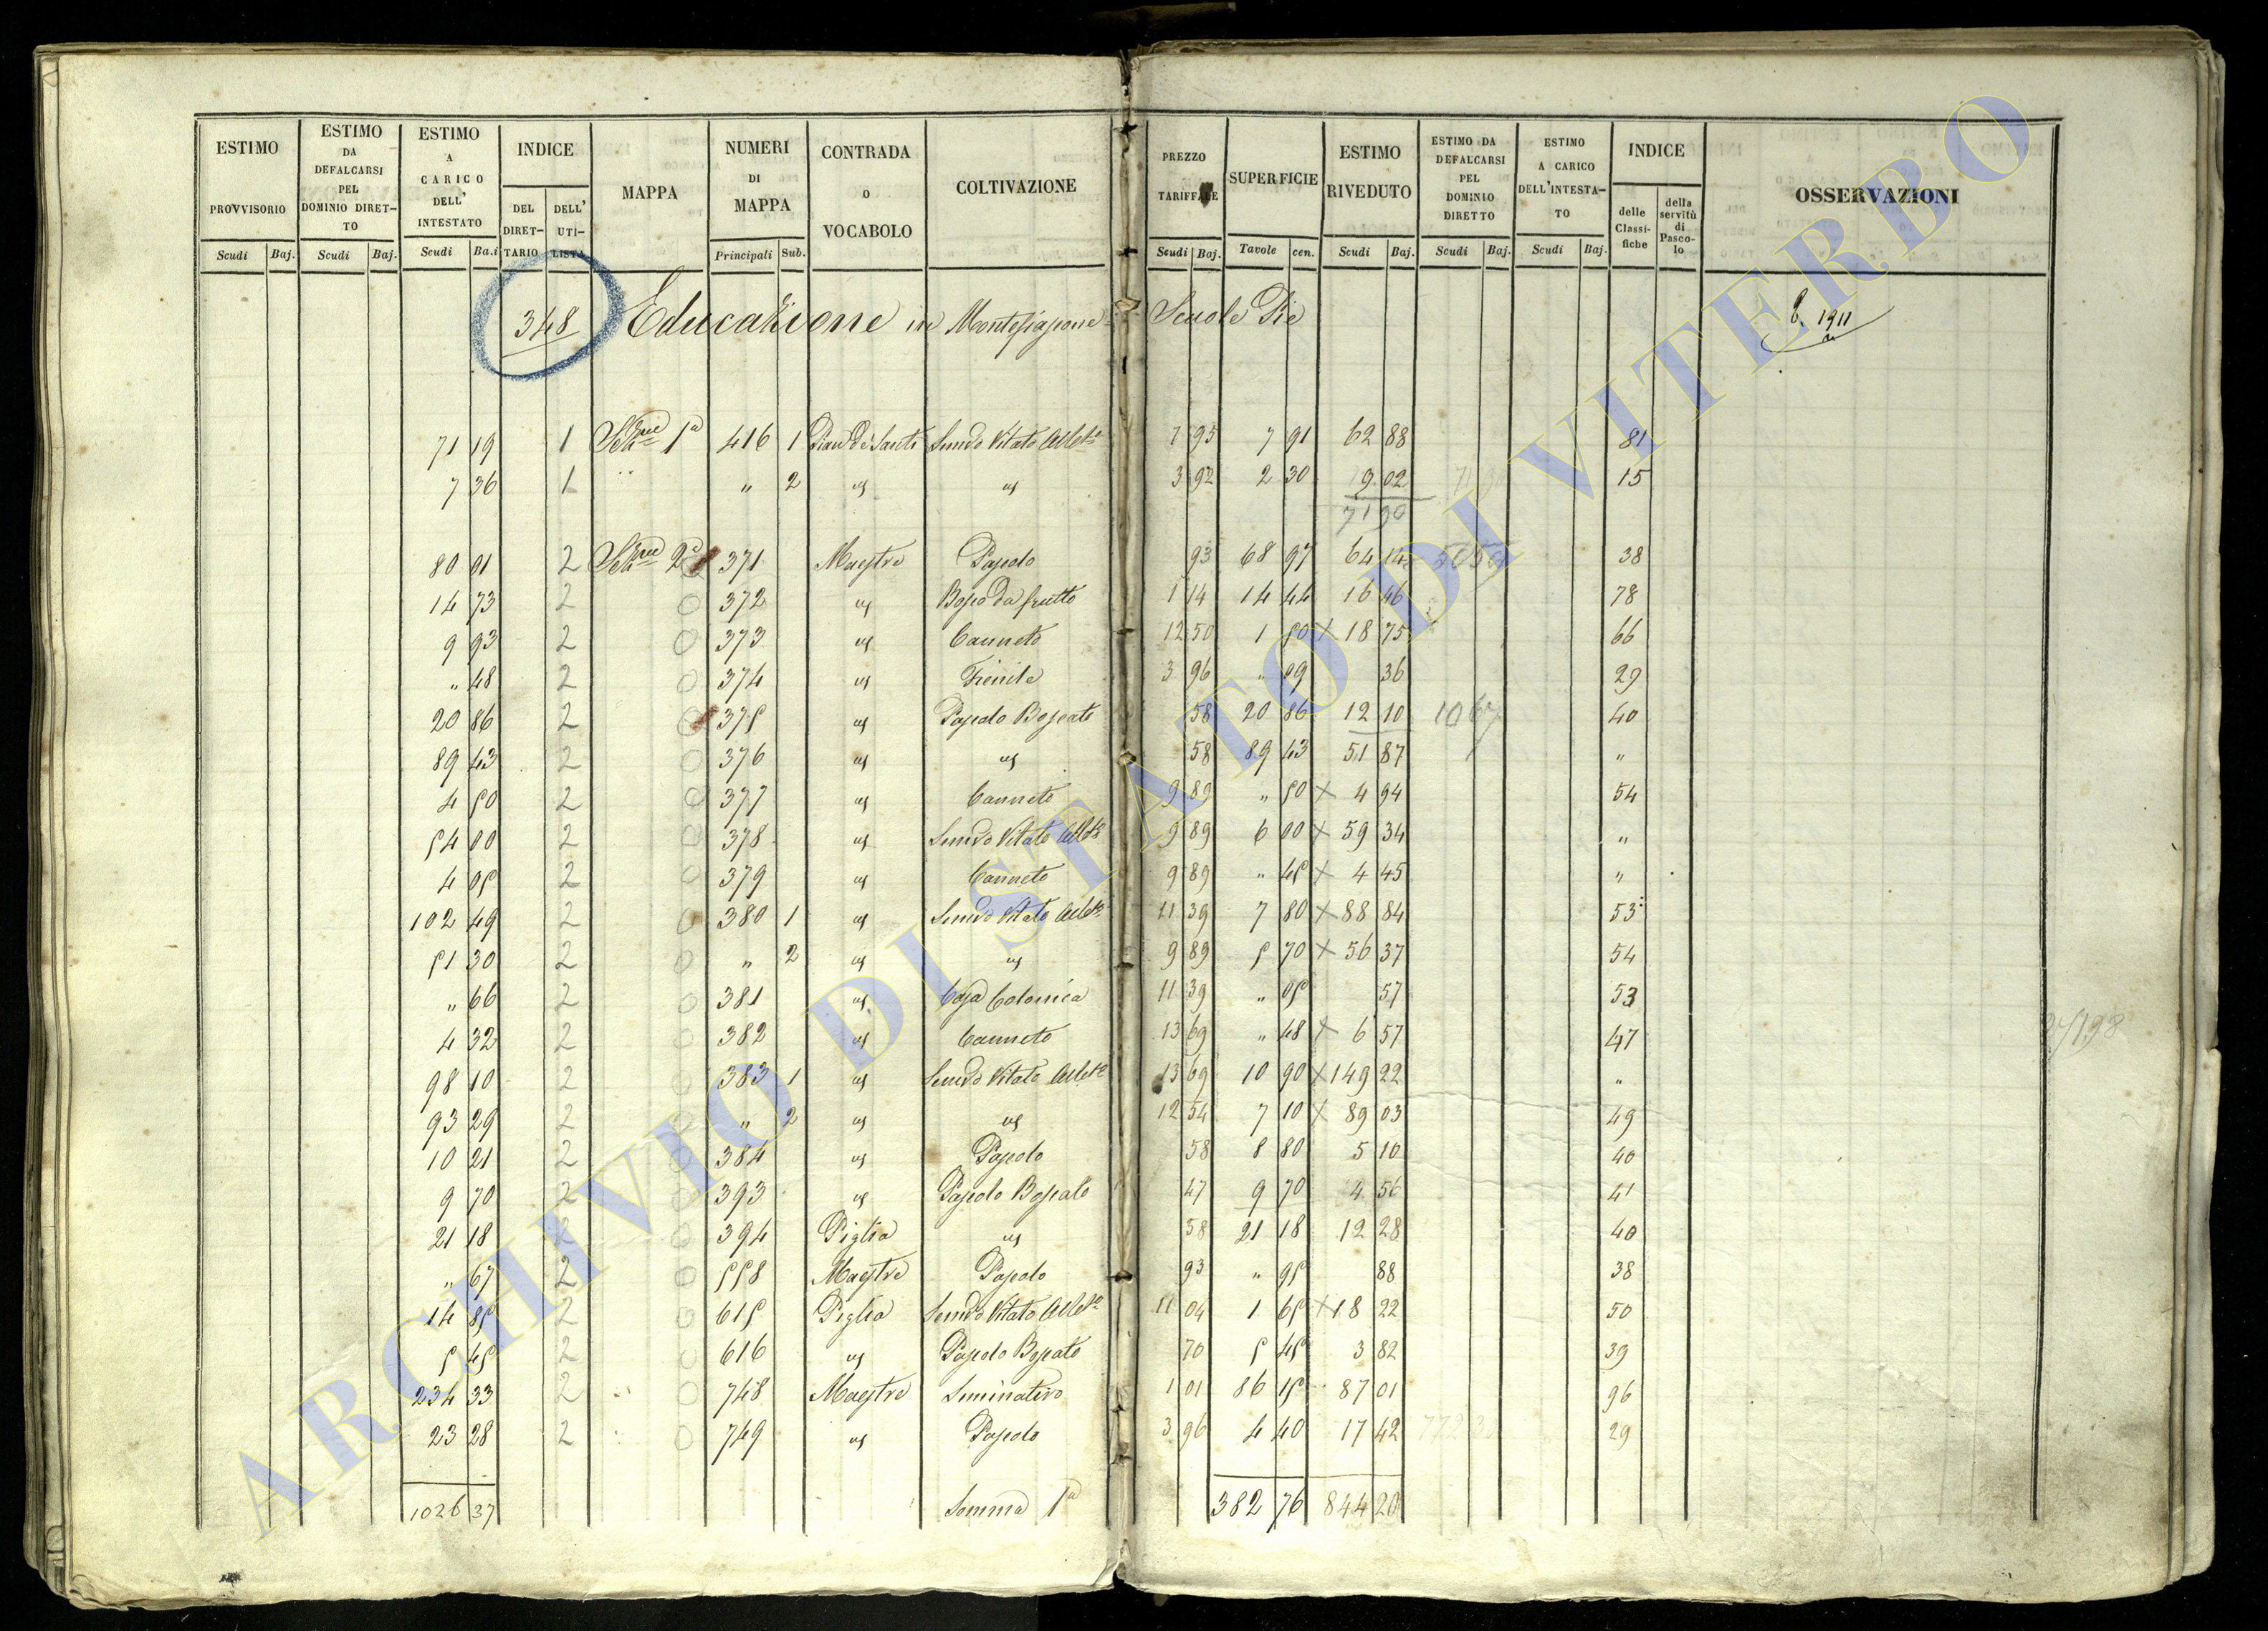 ESTIMO PROVVISORIO Scudi Baj.
ESTIMO DA DEFALCARSI PEL DOMINIO DIRET-TO Scudi Baj.
ESTIMO A CARICO DELL' INTESTATO Scudi Ba.i
INDICE DEL DIRET-TARIO DELL' UTI-LISTA
MAPPA
NUMERI DI MAPPA Principali Sub.
CONTRADA O VOCABOLO
COLTIVAZIONE
PREZZO TARIFFALE Scudi Baj.
SUPERFICIE Tavole cen.
ESTIMO RIVEDUTO Scudi Baj.
ESTIMO DA DEFALCARSI PEL DOMINIO DIRETTO Scudi Baj.
ESTIMO A CARICO DELL'INTESTA-TO Scudi Baj.
INDICE delle Classi-fiche della servitù di Pasco-lo
OSSERVAZIONI
348 Educazione in Montefiascone Scuole Pie 1911
71 19 1 Sezne 1a 416 1 Pian de Santi Semvo Vitato Albto 7 95 7 91 62 88 81
7 36 1 " " 2 " " 3 92 2 30 9 02 15
71 90
80 01 2 Sezne 2a 371 Maestre Pascolo 93 68 97 64 14 38
14 73 2 372 " Bosco da frutto 1 14 14 44 16 46 78
9 93 2 373 " Canneto 12 50 1 50 X 18 75 66
" 48 2 374 " Fienile 3 96 " 09 36 29
20 86 2 375 " Pascolo Boscato 58 20 86 12 10 10 67 40
89 43 2 376 " " 58 89 43 51 87 "
4 50 2 377 " Canneto 9 89 " 50 X 4 94 54
54 00 2 378 " Semvo Vitato Albto 9 89 6 00 X 59 34 "
4 05 2 379 " Canneto 9 89 " 45 X 4 45 "
102 49 2 380 1 " Semvo Vitato Albto 11 39 7 80 X 88 84 53
51 30 2 " 2 " " 9 89 5 70 X 56 37 54
" 66 2 381 " Casa Colonica 11 39 " 05 57 53
4 32 2 382 " Canneto 13 69 " 48 X 6 57 47
98 10 2 383 1 " Semvo Vitato Albto 13 69 10 90 X 149 22 "
93 29 2 " 2 " " 12 54 7 10 X 89 03 49
10 21 2 384 " Pascolo 58 8 80 5 10 40
9 70 2 393 " Pascolo Boscato 47 9 70 4 56 41
21 18 2 394 Piglia " 58 21 18 12 28 40
" 67 2 558 Maestre Pascolo 93 " 95 88 38
14 85 2 615 Piglia Semvo Vitato Albto 11 04 1 65 X 18 22 50
5 45 2 616 " Pascolo Boscato 70 5 45 3 82 39
234 33 2 " 748 Maestre Seminativo 1 01 86 15 87 01 96
23 28 2 749 " Pascolo 3 96 4 40 17 42 29
1026 37 Somma 1a 382 76 844 20
ARCHIVIO DI STATO DI VITERBO